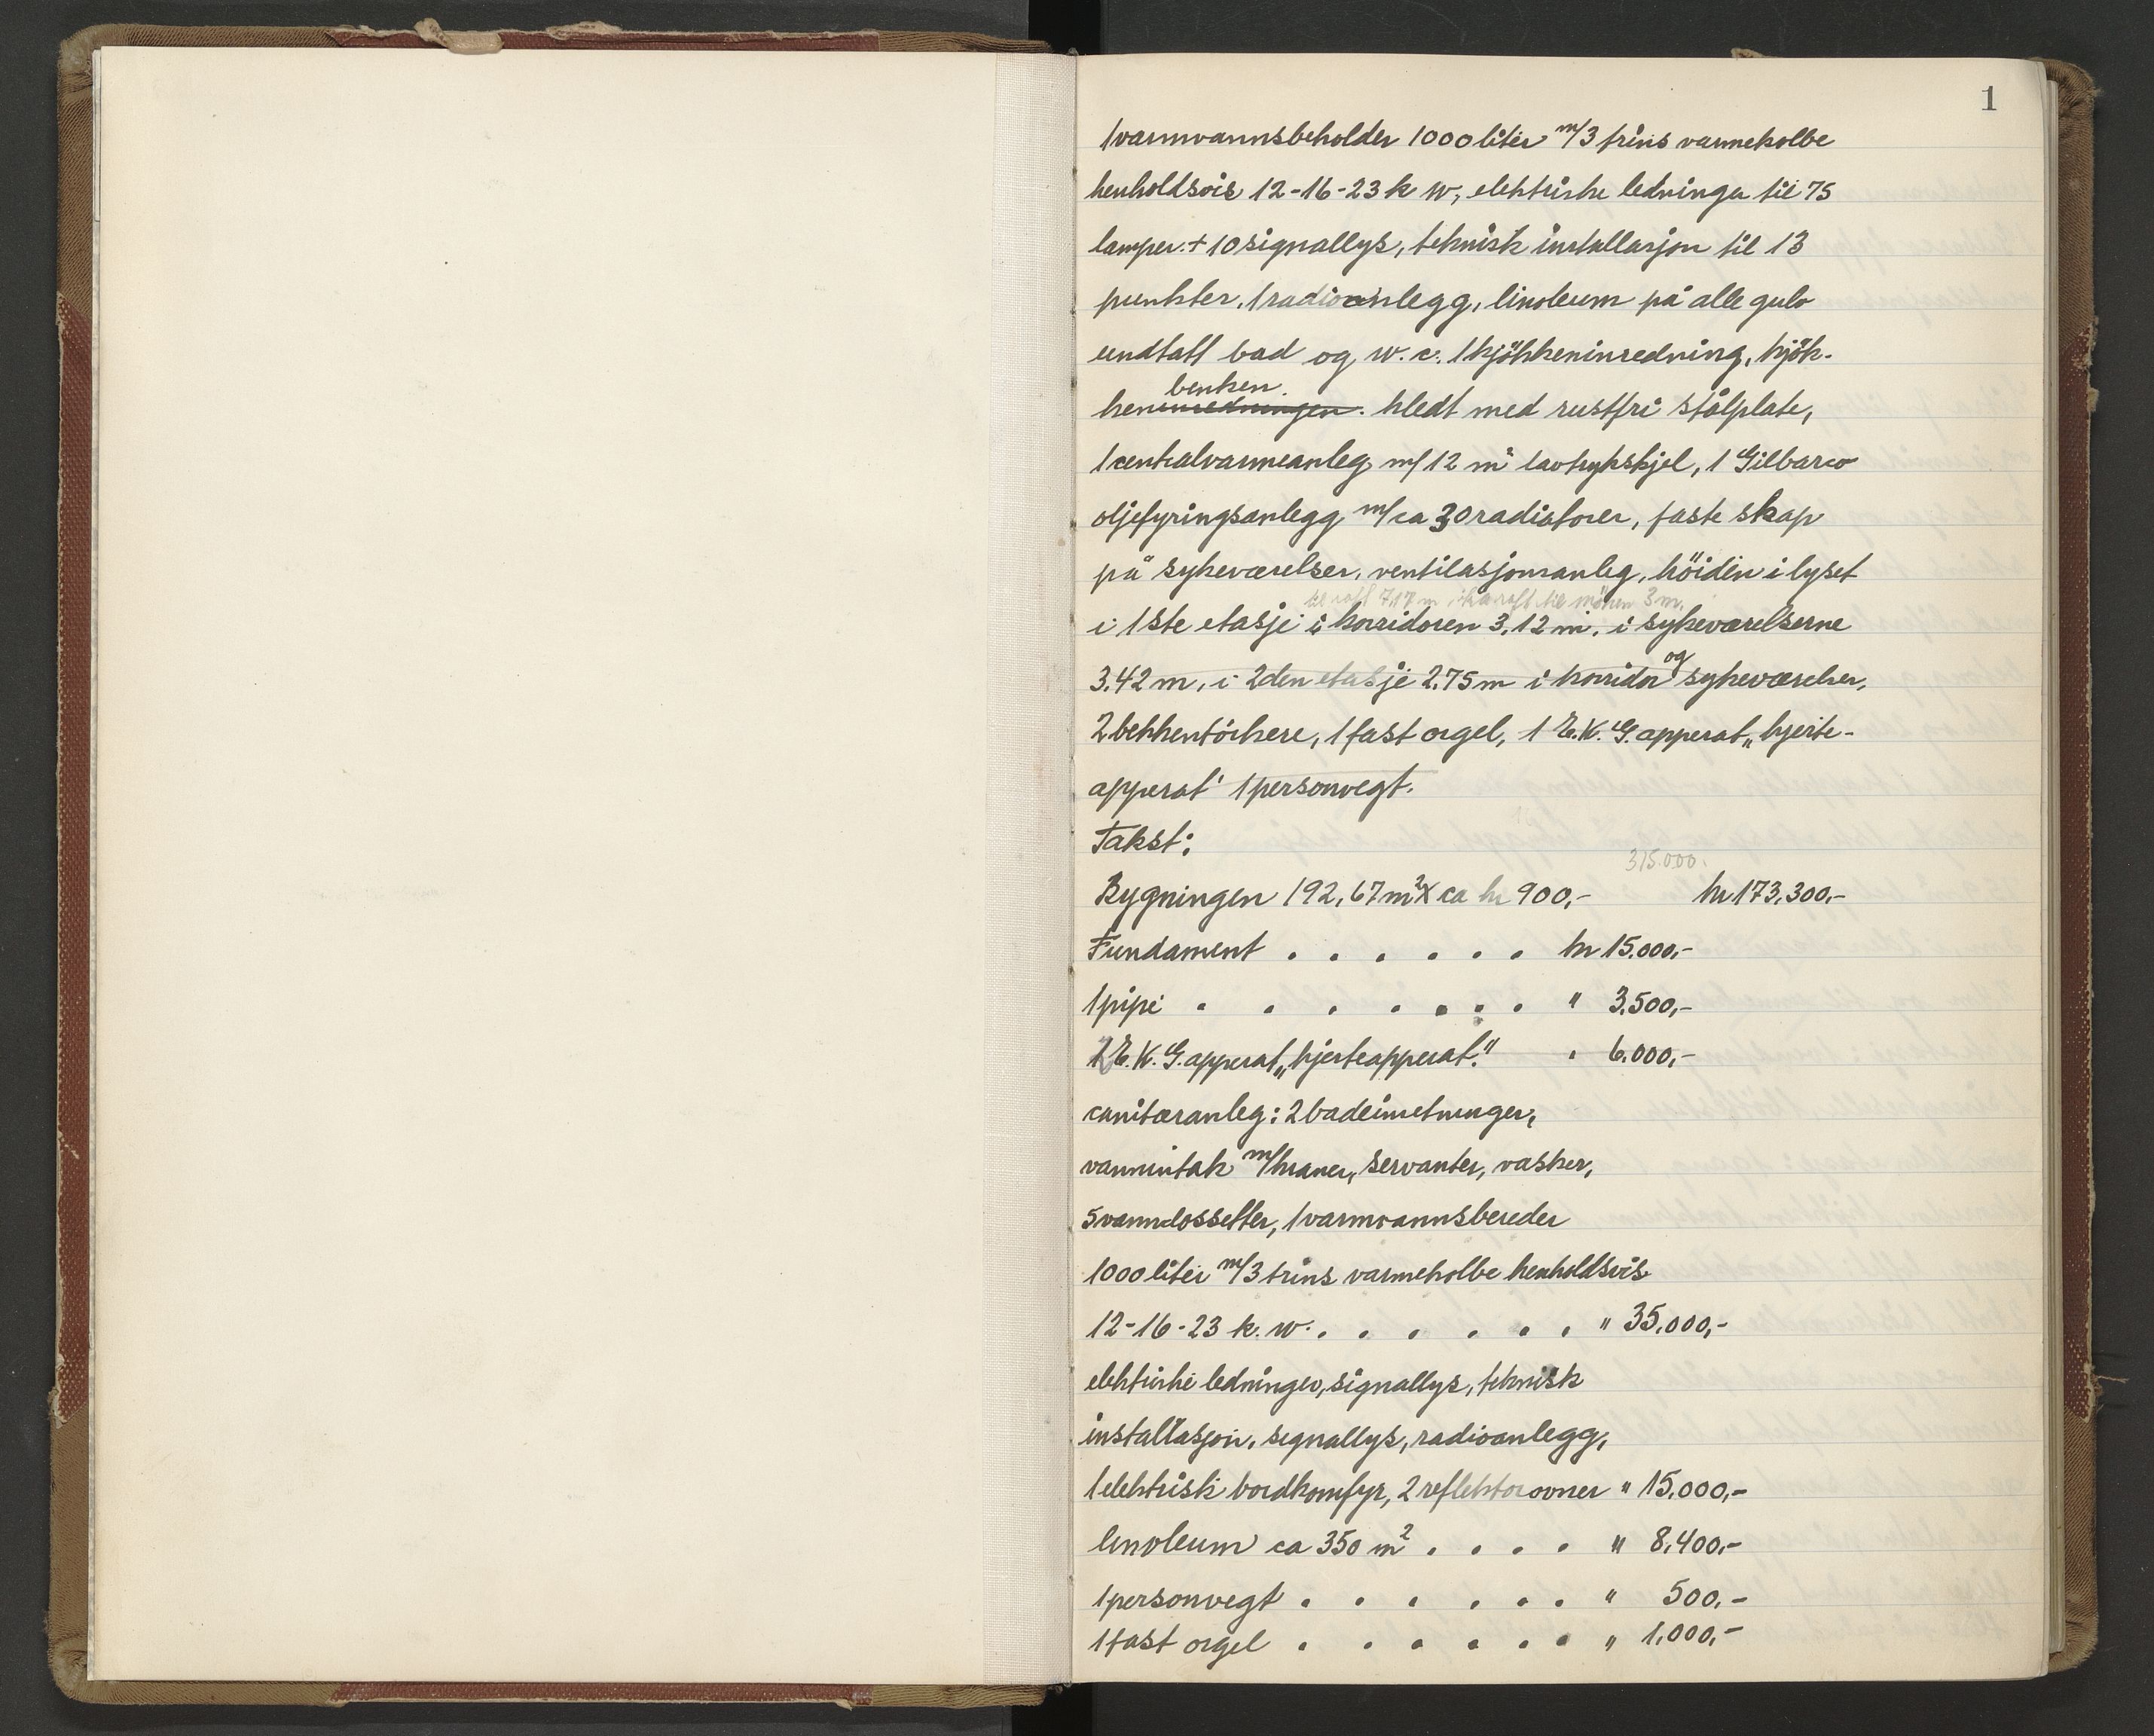 1
1 varmvannsbeholder 1000 liter m/3 trins varmekolbe
henholdsvis 12-16-23 k w, elektriske ledninger til 75
lamper. + 10 signallys, teknisk installasjon til 13
punkter, 1 radioanlegg, linoleum på alle gulv
undtatt bad og w.c. 1 kjökkeninredning, kjök-
benken
keninredningen. kledt med rustfri stålplate,
1 centralvarmeanleg m/ 12 m² lavtrykskjel, 1 Gilbarco
oljefyringsanlegg m/ ca 30 radiatorer, faste skap
på sykeværelser, ventilasjonsanleg, höiden i lyset
til raft 7,17 m raft til mönen 3 m.
i 1ste etasje i korridoren 3.12 m. i sykeværelserne
og
3.42 m, i 2den etasje 2.75 m i korridor sykeværelser,
2 bekkentörkere, 1 fast orgel, 1 E.K.G. apperat „hjerte-
apperat" 1 personvegt.
Takst:
315.000.
Bygningen 192,67 m² x ca kr 900,- kr 173,300,-
Fundament . . . . . . kr 15.000,-
1 pipe . . . . . . . " 3.500,-
1 E.K.G. apperat „hjerteapperat." " 6.000,-
canitæranleg: 2 badeinretninger,
vanninntak m/kraner, servanter, vasker,
5 vannclossetter, 1 varmvannsbereder
1000 liter m/3 trins varmekolbe henholdsvis
12-16-23 k.w. . . . . . . " 35.000,-
elektriske ledninger, signallys, teknisk
installasjon, signallys, radioanlegg,
1 elektrisk bordkomfyr, 2 reflektorovner " 15.000,-
linoleum ca 350 m² . . . . " 8.400,-
1 personvegt . . . . . . " 500,-
1 fast orgel . . . . . . " 1.000,-